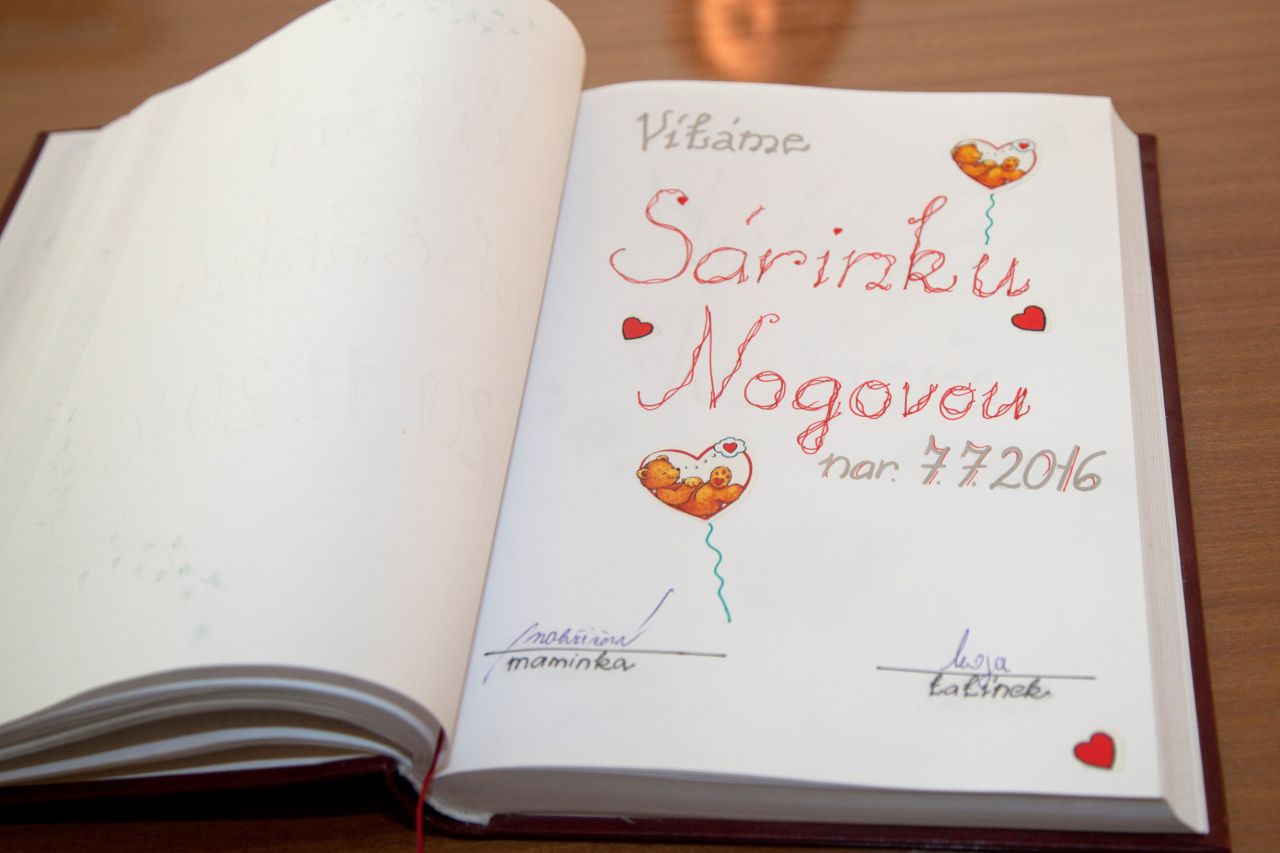 Vítáme
Sárinku
Nogovou
nar. 7.7.2016
maminka
tatínek